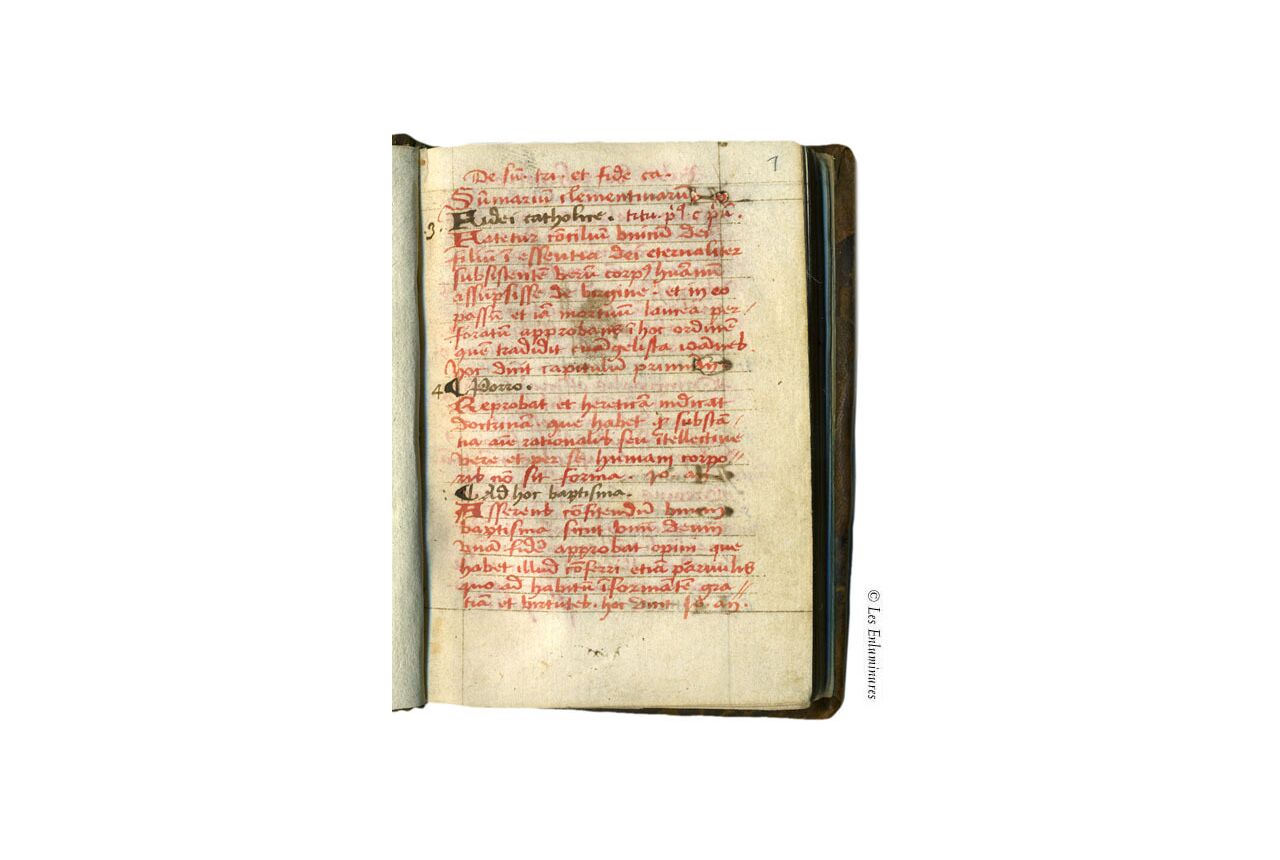 1
De sū. tri. et fide ca.
Sūmariū clementinarū
.3. Fidei catholice. titu. pꝰ. c. pū.
Fatetur cōciliū vnicū dei
filiū ī essentia dei eternaliter
subsistentē verū corpꝰ huānū
assūpsisse de virgine. et in eo
passū et iā mortuū lancea per/
foratū approbans ī hoc ordinē
quē tradidit euāgelista ioānes.
hoc dicit capitulū primū
4 ¶ Porro.
Reprobat et hereticā iudicat
doctrinā que habet ꝙ substā/
tia aīe rationalis seu ītellectiue
vere et per se humani corpo//
ris nō sit forma. Jo. an.
¶ Ad hoc baptisma.
Asserens cōfitendū vnicū
baptisma sicut vnū deum
vnā fidē approbat opini que
habet illud cōferri etiā paruulis
quo ad habitū īformātē gra//
tiā et virtutes. hoc dicit Jo an.
© Les Enluminures